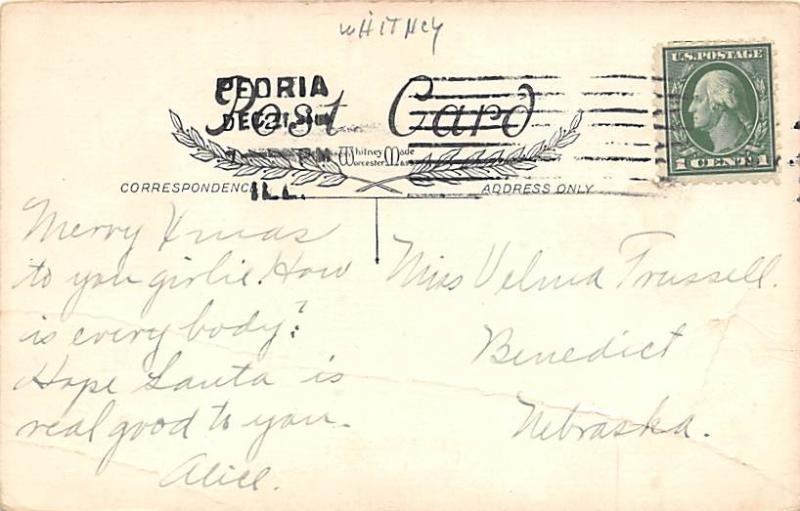 WHITNEY
PEORIA
DEC 21
ILL.
Post Card
Whitney Made
Worcester Mass
CORRESPONDENCE
ADDRESS ONLY
U.S. POSTAGE
1 CENT 1
Merry Xmas
to you girlie. How
is every body?
Hope Santa is
real good to you.
Alice.
Miss Velma Trussell.
Benedict
Nebraska.